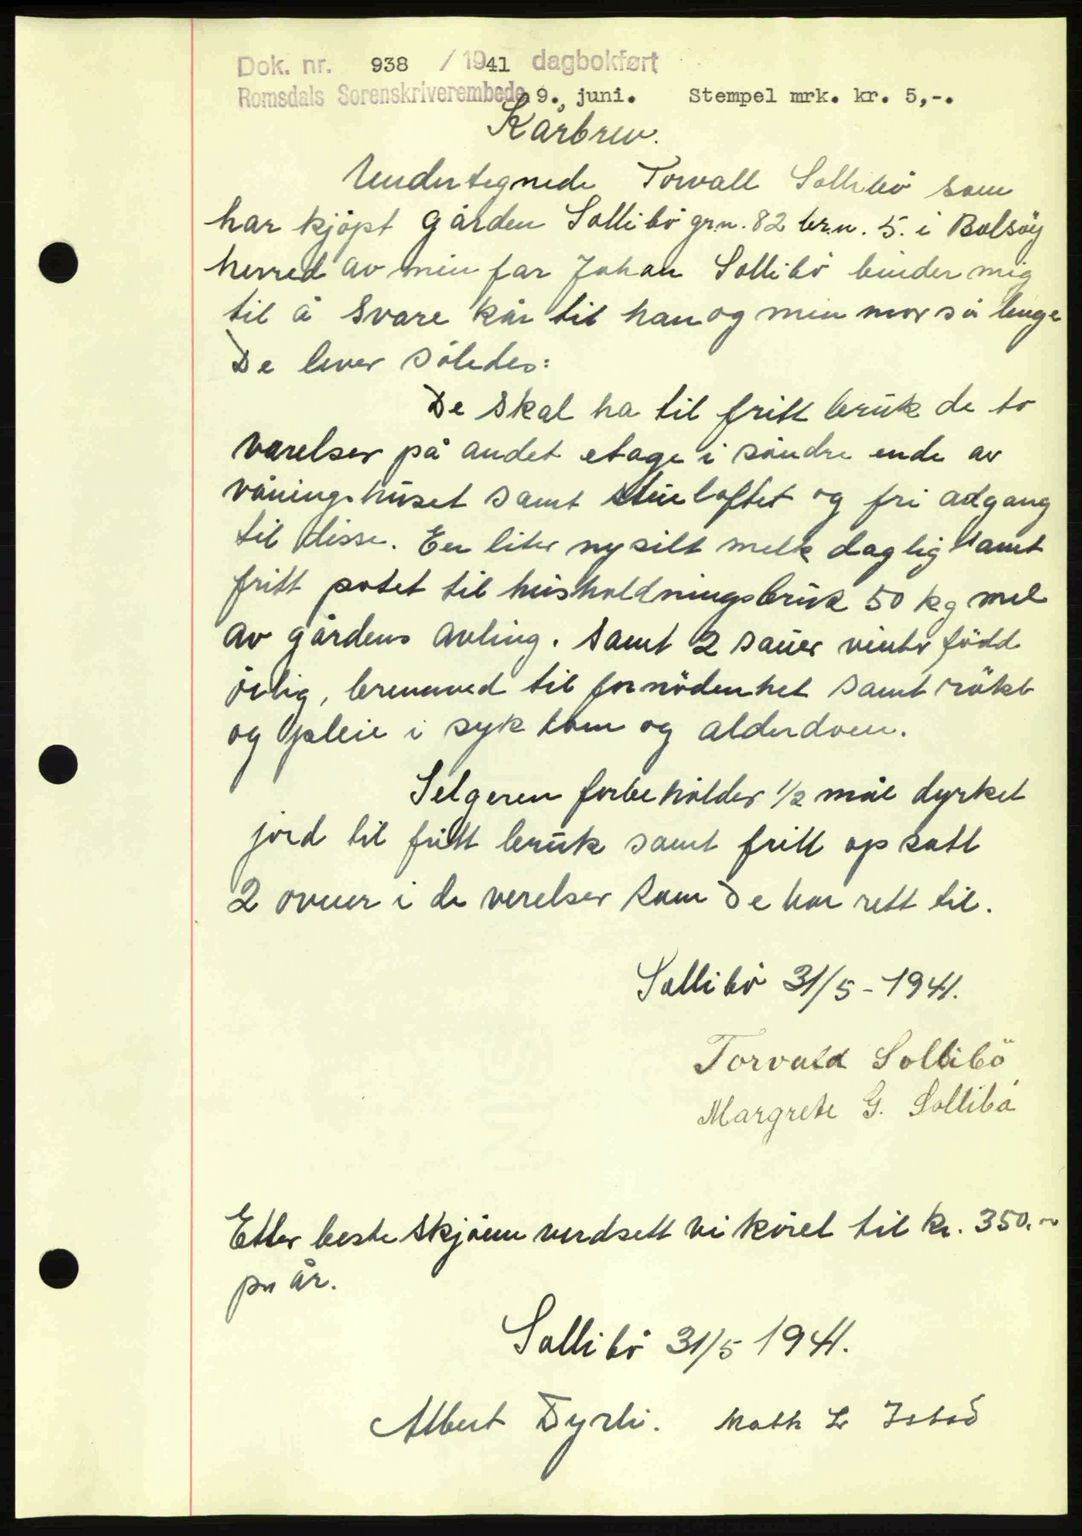 Dok. nr. 938 / 1941 dagbokført
Romsdals Sorenskriverembede 9. juni. Stempel mrk. kr. 5,-.
Kårbrev.
Undertegnede Torvald Sollibö som
har kjöpt gården Sollibö grn. 82 brn. 5. i Bolsöy
herred av min far Johan Sollibö binder mig
til å svare kår til han og min mor så lenge
De lever således:
De skal ha til fritt bruk de to
værelser på andet etage i söndre ende av
våningshuset samt stueloftet og fri adgang
til disse. En liter nysilt melk daglig samt
fritt potet til husholdningsbruk 50 kg mel
av gårdens avling. Samt 2 sauer vinterfödd
årlig, brenneved til fornödenhet samt rökt
og pleie i sykdom og alderdom.
Selgeren forbeholder 1/2 mål dyrket
jord til fritt bruk samt fritt opsatt
2 ovner i de verelser som De har rett til.
Sollibö 31/5 - 1941.
Torvald Sollibö
Margrete G. Sollibö
Etter beste skjönn verdsett vi kåret til kr. 350.-
pr år.
Sollibö 31/5 1941.
Albert Dyrli. Math L Istad